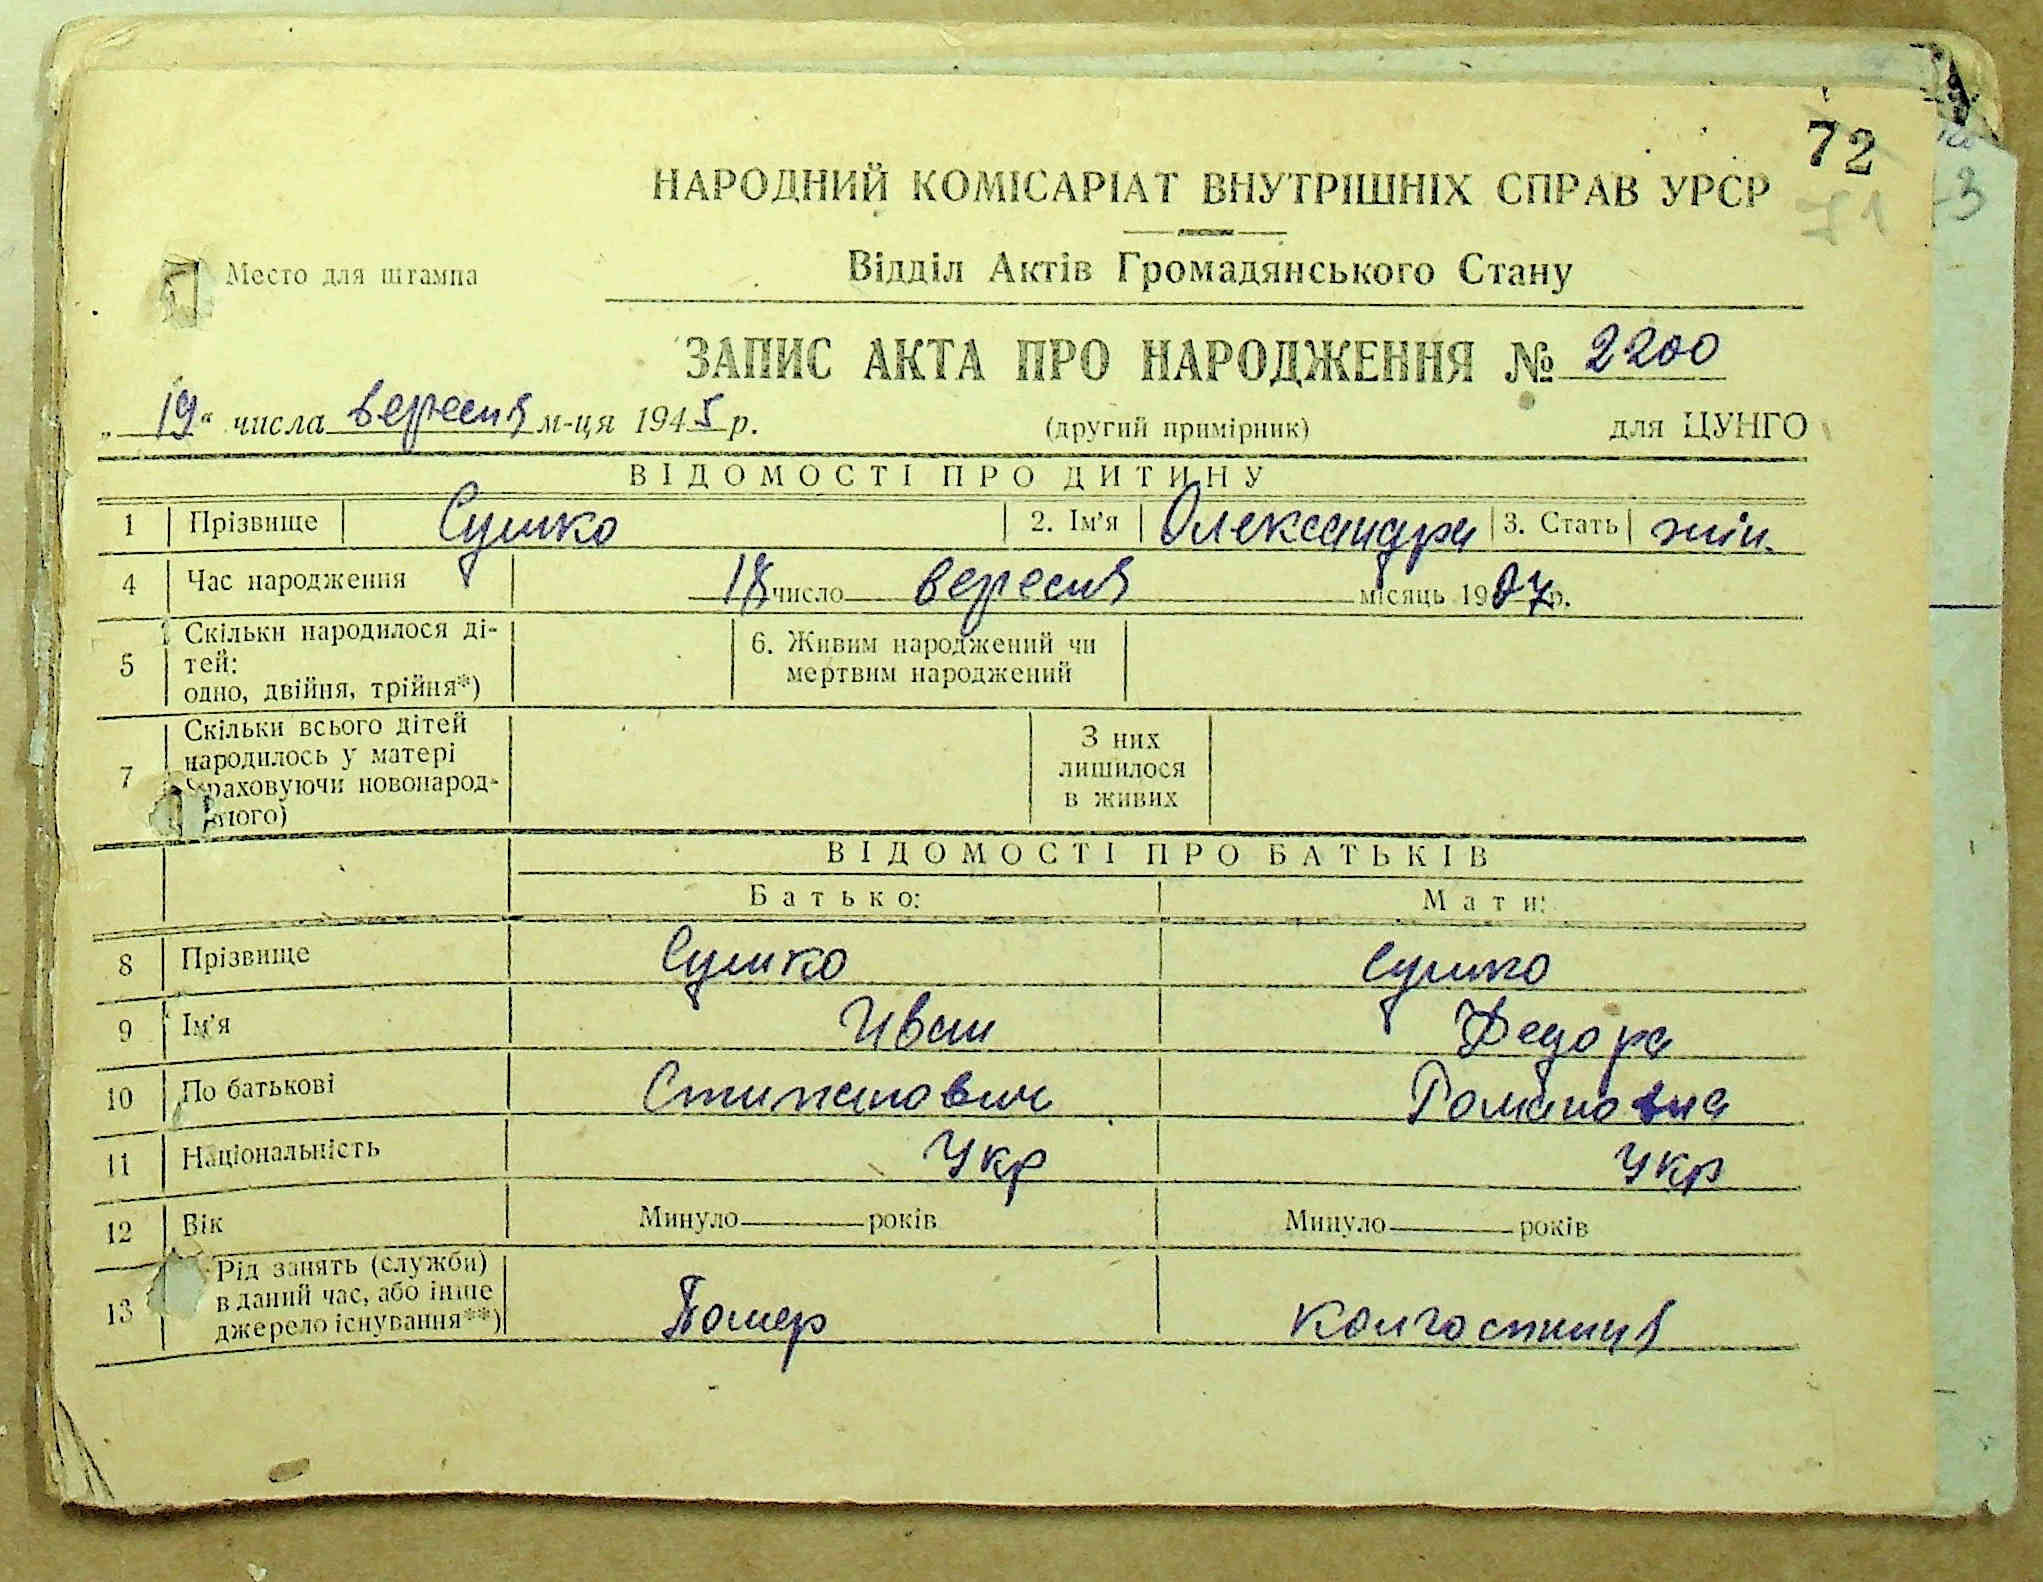 72
71
НАРОДНИЙ КОМІСАРІАТ ВНУТРІШНІХ СПРАВ УРСР
Место для штампа
Відділ Актів Громадянського Стану
ЗАПИС АКТА ПРО НАРОДЖЕННЯ № 2200
„19“ числа вересня м-ця 1945 р. (другий примірник) для ЦУНГО
ВІДОМОСТІ ПРО ДИТИНУ
1 Прізвище Сушко 2. Ім'я Олександра 3. Стать жін.
4 Час народження 18 число вересня місяць 1927 р.
5 Скільки народилося ді-
тей:
одно, двійня, трійня*)
6. Живим народжений чи
мертвим народжений
7 Скільки всього дітей
народилось у матері
враховуючи новонарод-
ного)
З них
лишилося
в живих
ВІДОМОСТІ ПРО БАТЬКІВ
Батько: Мати:
8 Прізвище Сушко Сушко
9 Ім'я Иван Федора
10 По батькові Стипанович Романовна
11 Національність Укр Укр
12 Вік Минуло років Минуло років
13 Рід занять (служби)
в даний час, або інше
джерело існування**)
Помер Колгоспниця